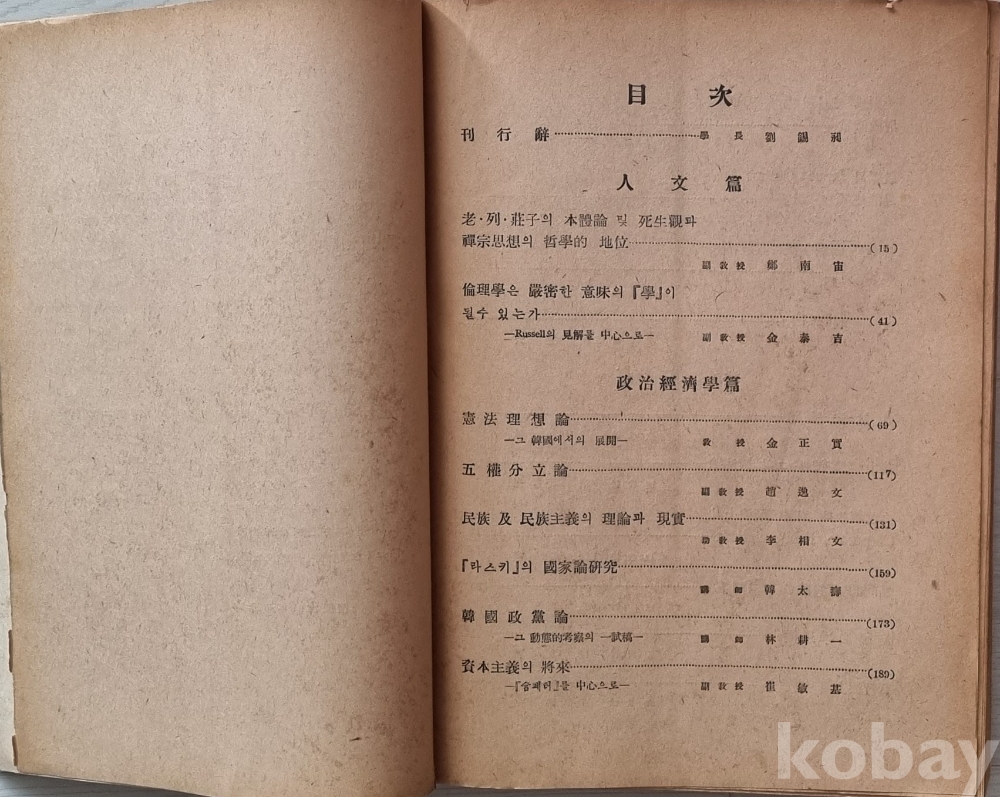 目 次
刊 行 辭 學 長 劉 錫 昶
人 文 篇
老·列·莊子의 本體論 및 死生觀과
禪宗思想의 哲學的 地位 (15)
副 敎 授 鄭 南 宙
倫理學은 嚴密한 意味의『學』이
될수 있는가 (41)
—Russell의 見解를 中心으로— 副 敎 授 金 泰 吉
政治經濟學篇
憲法理想論 (69)
—그 韓國에서의 展開— 敎 授 金 正 實
五權分立論 (117)
副 敎 授 趙 逸 文
民族 及 民族主義의 理論과 現實 (131)
助 敎 授 李 相 文
『라스키』의 國家論硏究 (159)
講 師 韓 太 壽
韓國政黨論 (173)
—그 動態的考察의 一試稿— 講 師 林 耕 一
資本主義의 將來 (189)
—『슘페터』를 中心으로— 副 敎 授 崔 敏 基
kobay